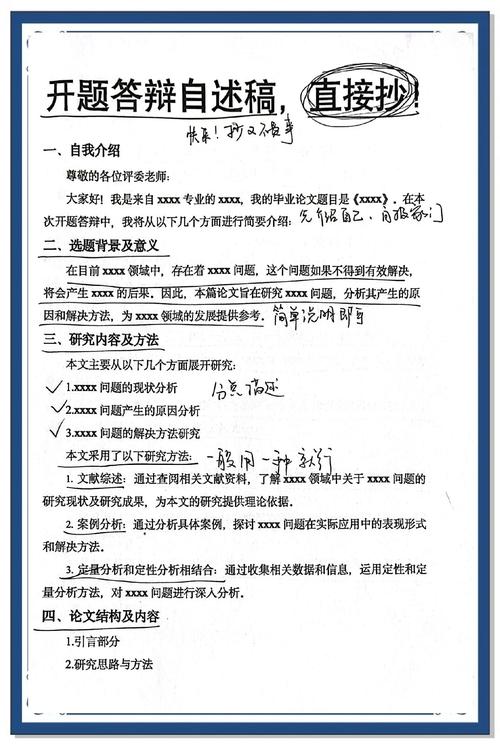 开题答辩自述稿，直接抄！
快来！抄又不费事
一、自我介绍
尊敬的各位评委老师：
大家好！我是来自 xxxx 专业的 xxxx，我的毕业论文题目是《xxxx》。在本
次开题答辩中，我将从以下几个方面进行简要介绍：先介绍自己、自报家门
二、选题背景及意义
在目前 xxxx 领域中，存在着 xxxx 问题，这个问题如果不得到有效解决，
将会产生 xxxx 的后果。因此，本篇论文旨在研究 xxxx 问题，分析其产生的原
因和解决方法，为 xxxx 领域的发展提供参考。简单说明即可
三、研究内容及方法
本文主要从以下几个方面展开研究：
1.xxxx 问题的现状分析 分点描述
2.xxxx 问题产生的原因分析
3.xxxx 问题的解决方法研究
本文采用了以下研究方法：一般用一种就行
1. 文献综述：通过查阅相关文献资料，了解 xxxx 领域中关于 xxxx 问题的
研究现状及研究成果，为本文的研究提供理论依据。
2. 案例分析：通过分析具体案例，探讨 xxxx 问题在实际应用中的表现形式
和解决方法。
3. 定量分析和定性分析相结合：通过收集相关数据和信息，运用定性和定
量分析方法，对 xxxx 问题进行深入分析。
四、论文结构及内容
1.引言部分
2.研究思路与方法